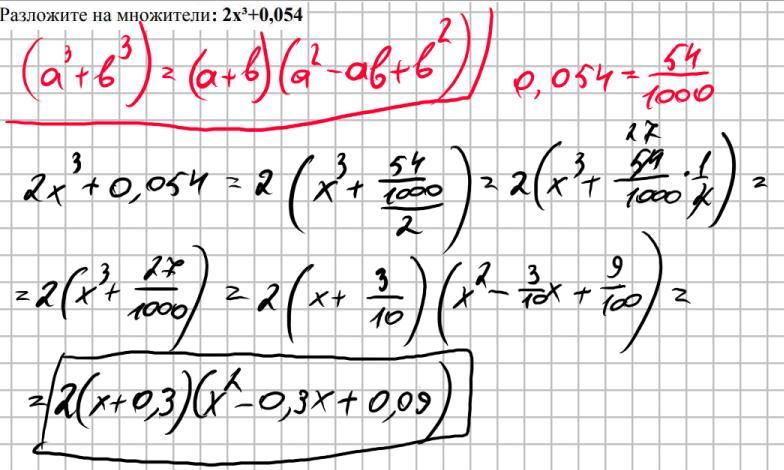 Разложите на множители: 2x³+0,054
(a³+b³) = (a+b)(a²-ab+b²)
0,054 = 54/1000
2x³+0,054 = 2(x³ + 54/1000/2) = 2(x³ + 54/1000 · 1/2) =
27
= 2(x³ + 27/1000) = 2(x + 3/10)(x² - 3/10x + 9/100) =
= 2(x+0,3)(x²-0,3x+0,09)